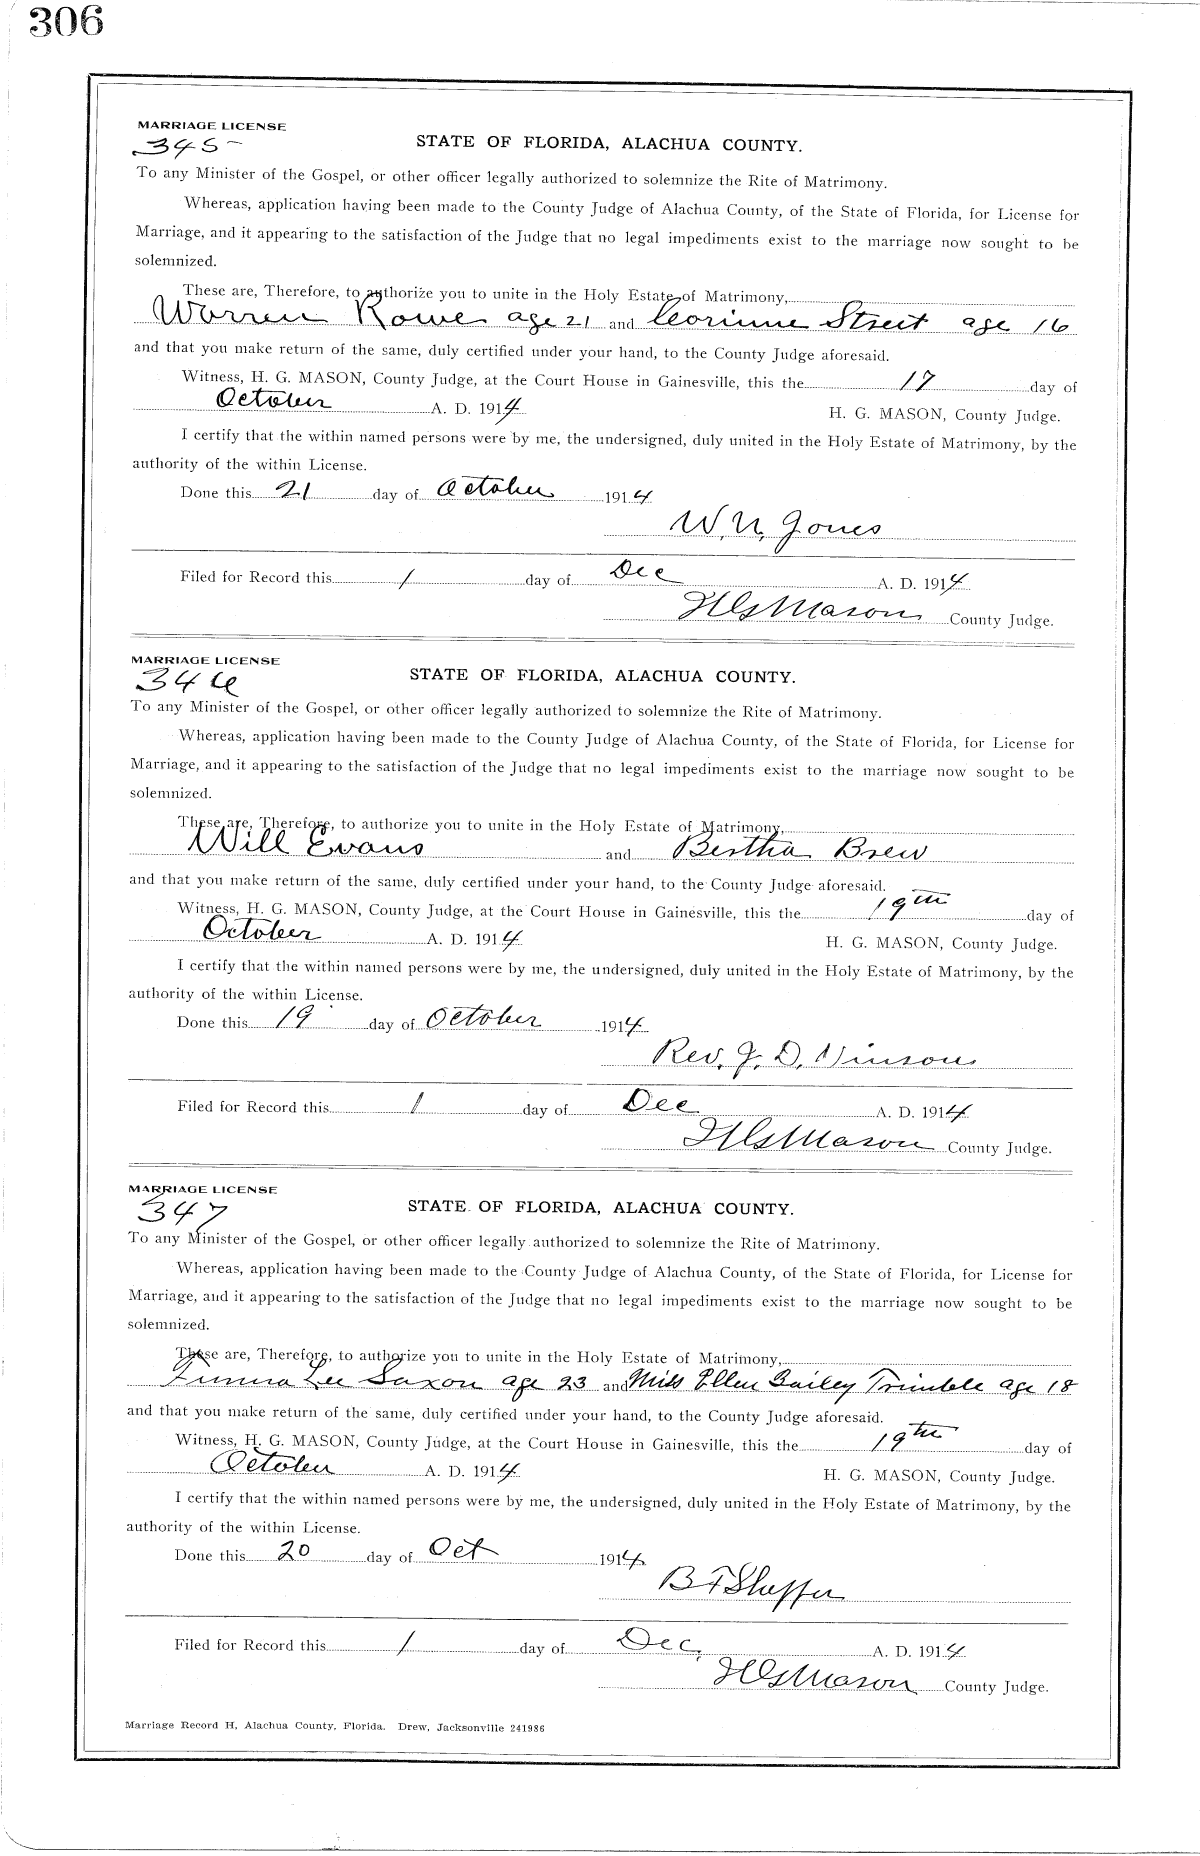 306
MARRIAGE LICENSE
345
STATE OF FLORIDA, ALACHUA COUNTY.
To any Minister of the Gospel, or other officer legally authorized to solemnize the Rite of Matrimony.
Whereas, application having been made to the County Judge of Alachua County, of the State of Florida, for License for
Marriage, and it appearing to the satisfaction of the Judge that no legal impediments exist to the marriage now sought to be
solemnized.
These are, Therefore, to authorize you to unite in the Holy Estate of Matrimony,
Warren Rowe age 21 and Corinne Street age 16
and that you make return of the same, duly certified under your hand, to the County Judge aforesaid.
Witness, H. G. MASON, County Judge, at the Court House in Gainesville, this the 17 day of
October A. D. 1914 H. G. MASON, County Judge.
I certify that the within named persons were by me, the undersigned, duly united in the Holy Estate of Matrimony, by the
authority of the within License.
Done this 21 day of October 1914
W. N. Jones
Filed for Record this 1 day of Dec A. D. 1914
H G Mason County Judge.
MARRIAGE LICENSE
346
STATE OF FLORIDA, ALACHUA COUNTY.
To any Minister of the Gospel, or other officer legally authorized to solemnize the Rite of Matrimony.
Whereas, application having been made to the County Judge of Alachua County, of the State of Florida, for License for
Marriage, and it appearing to the satisfaction of the Judge that no legal impediments exist to the marriage now sought to be
solemnized.
These are, Therefore, to authorize you to unite in the Holy Estate of Matrimony,
Will Evans and Bertha Brew
and that you make return of the same, duly certified under your hand, to the County Judge aforesaid.
Witness, H. G. MASON, County Judge, at the Court House in Gainesville, this the 19th day of
October A. D. 1914 H. G. MASON, County Judge.
I certify that the within named persons were by me, the undersigned, duly united in the Holy Estate of Matrimony, by the
authority of the within License.
Done this 19 day of October 1914
Rev. J. D. Vinson
Filed for Record this 1 day of Dec A. D. 1914
H G Mason County Judge.
MARRIAGE LICENSE
347
STATE OF FLORIDA, ALACHUA COUNTY.
To any Minister of the Gospel, or other officer legally authorized to solemnize the Rite of Matrimony.
Whereas, application having been made to the County Judge of Alachua County, of the State of Florida, for License for
Marriage, and it appearing to the satisfaction of the Judge that no legal impediments exist to the marriage now sought to be
solemnized.
These are, Therefore, to authorize you to unite in the Holy Estate of Matrimony,
Lee Saxon age 23 and Miss Ellen Bailey Trimble age 18
and that you make return of the same, duly certified under your hand, to the County Judge aforesaid.
Witness, H. G. MASON, County Judge, at the Court House in Gainesville, this the 19th day of
October A. D. 1914 H. G. MASON, County Judge.
I certify that the within named persons were by me, the undersigned, duly united in the Holy Estate of Matrimony, by the
authority of the within License.
Done this 20 day of Oct 1914
B F
Filed for Record this 1 day of Dec, A. D. 1914
H G Mason County Judge.
Marriage Record H, Alachua County, Florida. Drew, Jacksonville 241986